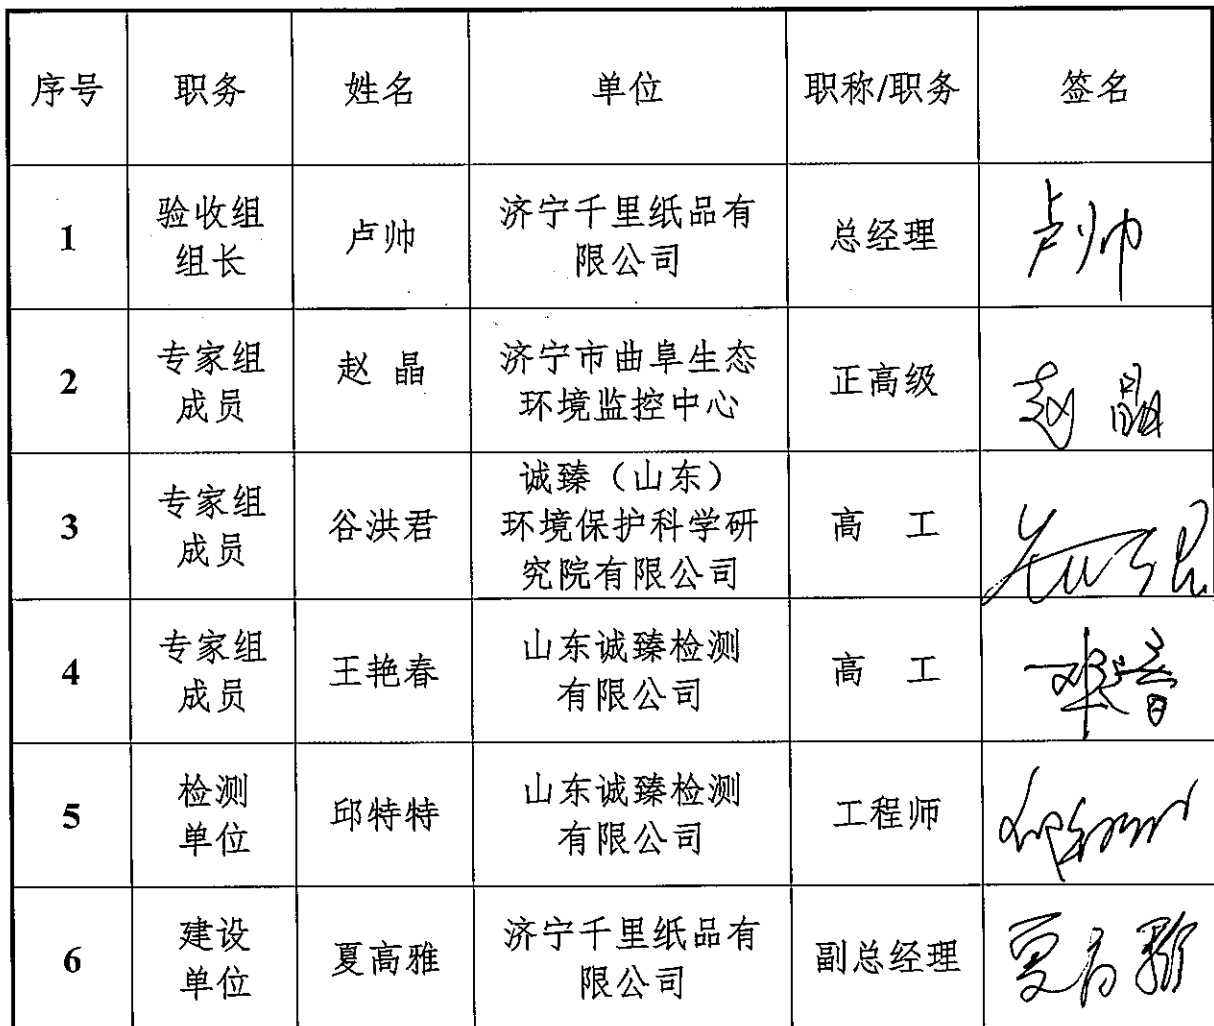 序号 职务 姓名 单位 职称/职务 签名
1 验收组组长 卢帅 济宁千里纸品有限公司 总经理 卢帅
2 专家组成员 赵 晶 济宁市曲阜生态环境监控中心 正高级 赵晶
3 专家组成员 谷洪君 诚臻（山东）环境保护科学研究院有限公司 高 工
4 专家组成员 王艳春 山东诚臻检测有限公司 高 工
5 检测单位 邱特特 山东诚臻检测有限公司 工程师
6 建设单位 夏高雅 济宁千里纸品有限公司 副总经理 夏高雅